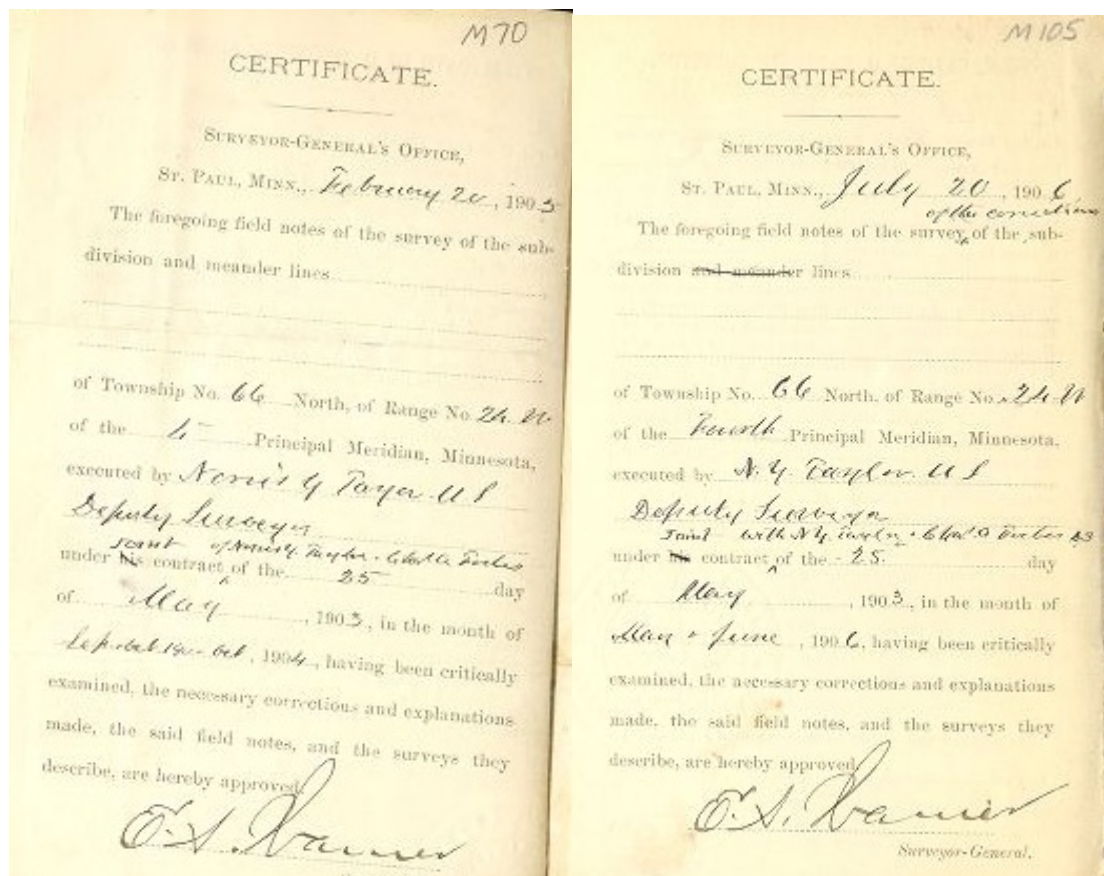 M70
CERTIFICATE.
SURVEYOR-GENERAL'S OFFICE,
ST. PAUL, MINN., February 20, 1905
The foregoing field notes of the survey of the sub-
division and meander lines
of Township No. 66 North, of Range No. 24 W
of the 4 Principal Meridian, Minnesota,
executed by Norris Y Taylor U S
Deputy Surveyor
joint of Norris Y. Taylor
under his contract of the 25 day
of May, 1903, in the month of
Oct, 1904, having been critically
examined, the necessary corrections and explanations
made, the said field notes, and the surveys they
describe, are hereby approved.
E. S. Warner
M105
CERTIFICATE.
SURVEYOR-GENERAL'S OFFICE,
ST. PAUL, MINN., July 20, 1906
of the corrections
The foregoing field notes of the survey of the sub-
division and meander lines
of Township No. 66 North, of Range No. 24 W
of the Fourth Principal Meridian, Minnesota,
executed by N. Y. Taylor U S
Deputy Surveyor
Joint with N Y Taylor
under his contract of the 25 day
of May, 1903, in the month of
May + June, 1906, having been critically
examined, the necessary corrections and explanations
made, the said field notes, and the surveys they
describe, are hereby approved.
E. S. Warner
Surveyor-General.